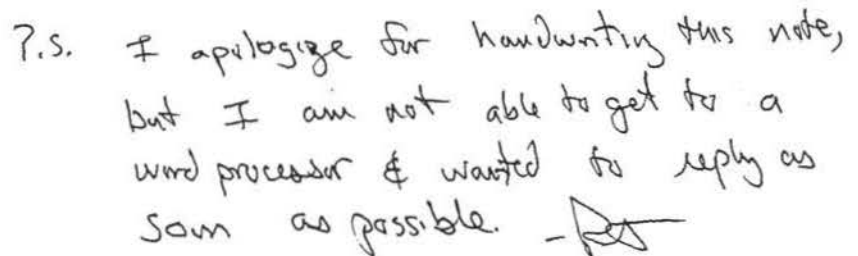 P.S. I apologize for handwriting this note,
but I am not able to get to a
word processor & wanted to reply as
soon as possible. -